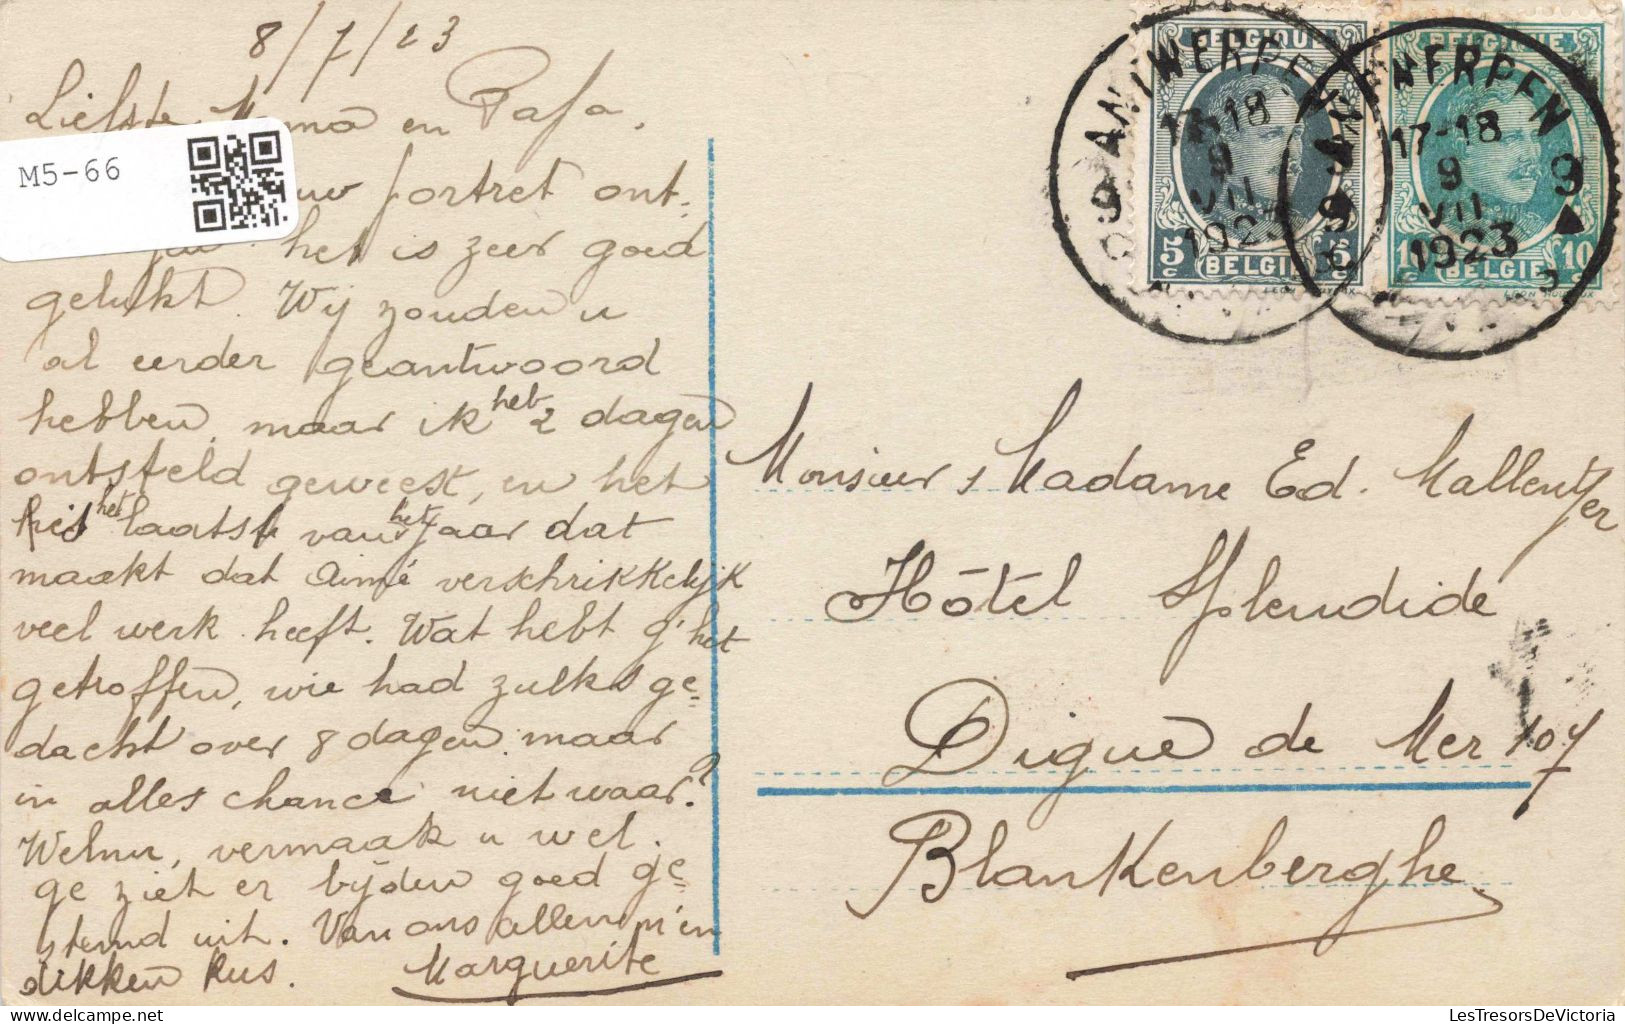 8/7/23
Liefste Mama en Papa.
M5-66
uw portret ont-
het is zeer goed
gelukt. Wij zouden u
al eerder geantwoord
hebben, maar ik heb 2 dagen
ontsteld geweest, en het
het laatst van het jaar dat
maakt dat Aimé verschrikkelijk
veel werk heeft. Wat hebt g' het
getroffen, wie had zulks ge-
dacht over 8 dagen. maar
in alles chance niet waar?
Welnu, vermaak u wel.
ge ziet er bijden goed ge-
stemd uit. Van ons allen m'en
dikken kus. Marguerite
BELGIQUE
5c BELGIE 5c
BELGIQUE
10c BELGIE 10c
ANTWERPEN 9
17-18
9
VII
1923
ANTWERPEN 9
17-18
9
VII
1923
Monsieur & Madame Ed. Mallentjer
Hôtel Splendide
Digue de Mer 107
Blankenberghe.
LesTresorsDeVictoria.com